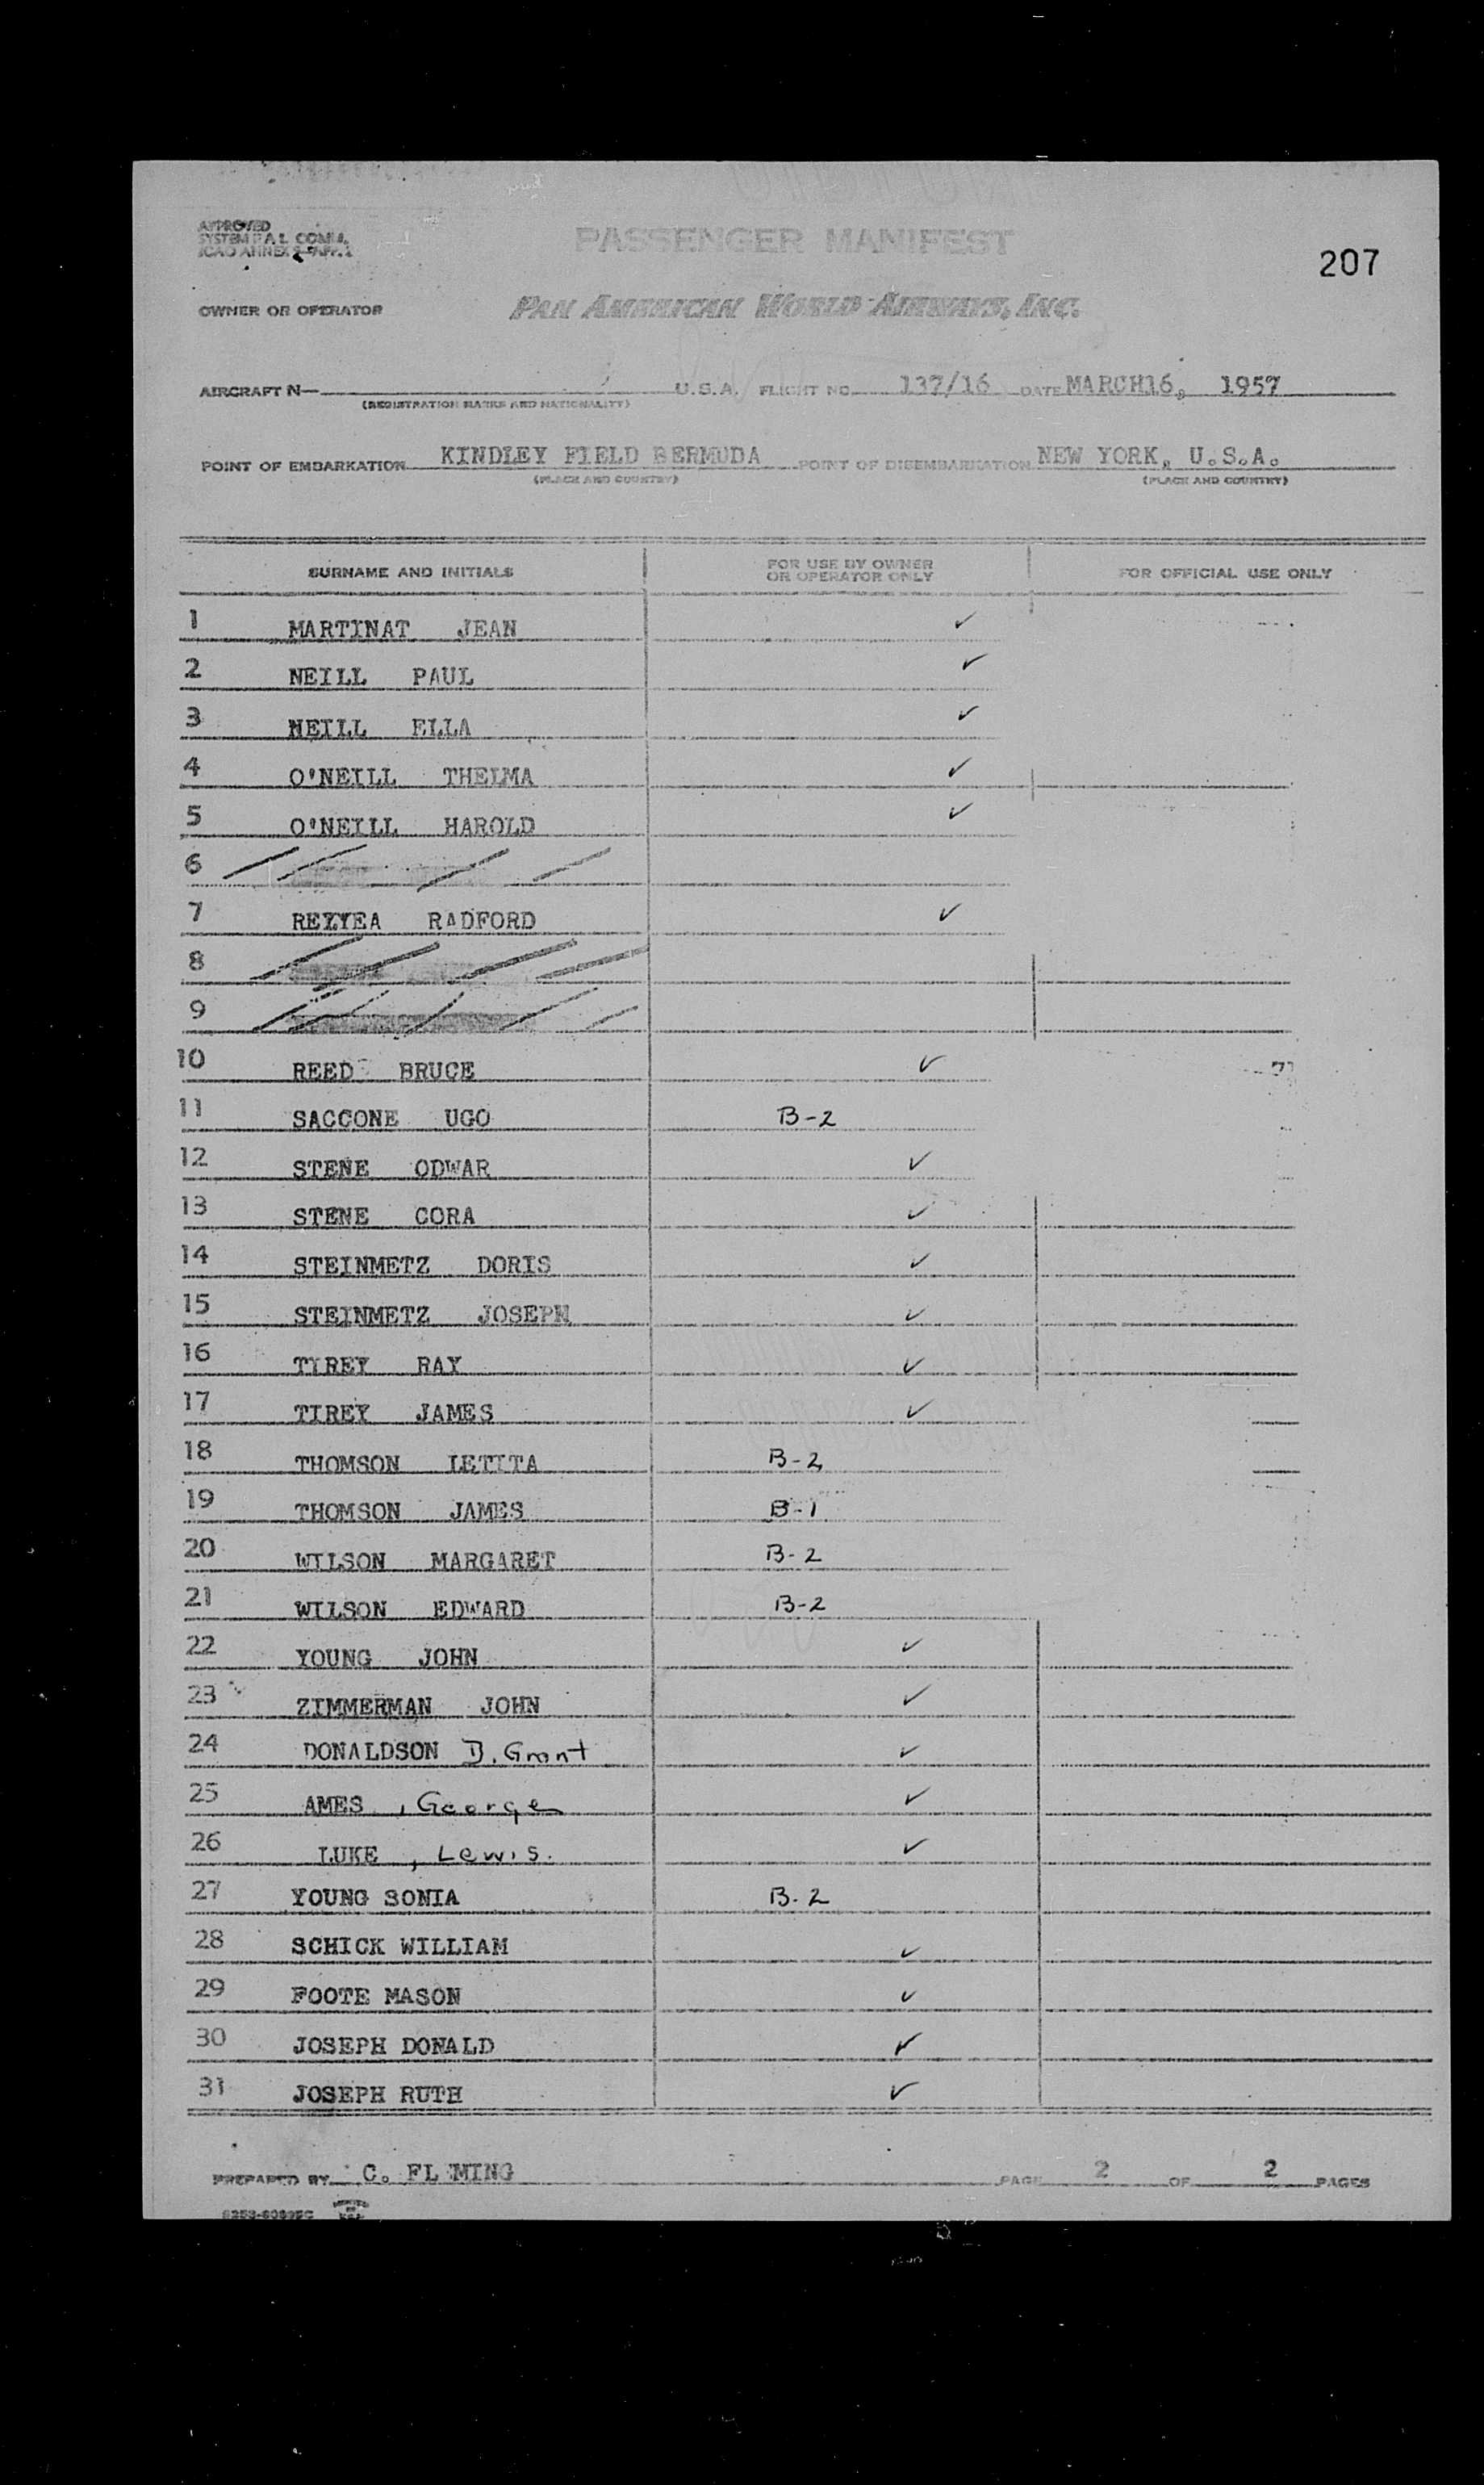 APPROVED
SYSTEM F A L COMM.
ICAO ANNEX 9-APP. 1
PASSENGER MANIFEST
207
OWNER OR OPERATOR PAN AMERICAN WORLD AIRWAYS, INC.
AIRCRAFT N— U.S.A. FLIGHT NO. 137/16 DATE MARCH16, 1957
(REGISTRATION MARKS AND NATIONALITY)
POINT OF EMBARKATION KINDLEY FIELD BERMUDA POINT OF DISEMBARKATION NEW YORK, U.S.A.
(PLACE AND COUNTRY) (PLACE AND COUNTRY)
SURNAME AND INITIALS FOR USE BY OWNER OR OPERATOR ONLY FOR OFFICIAL USE ONLY
1 MARTINAT JEAN ✓
2 NEILL PAUL ✓
3 NEILL ELLA ✓
4 O'NEILL THELMA ✓
5 O'NEILL HAROLD ✓
6
7 RADFORD ✓
8
9
10 REED BRUCE ✓
11 SACCONE UGO B-2
12 STENE ODWAR ✓
13 STENE CORA ✓
14 STEINMETZ DORIS ✓
15 STEINMETZ JOSEPH ✓
16 TIREY RAY ✓
17 TIREY JAMES ✓
18 THOMSON LETITA B-2
19 THOMSON JAMES B-1
20 WILSON MARGARET B-2
21 WILSON EDWARD B-2
22 YOUNG JOHN ✓
23 ZIMMERMAN JOHN ✓
24 DONALDSON D. Grant ✓
25 AMES , George ✓
26 LUKE , Lewis. ✓
27 YOUNG SONIA B-2
28 SCHICK WILLIAM ✓
29 FOOTE MASON ✓
30 JOSEPH DONALD ✓
31 JOSEPH RUTH ✓
PREPARED BY C. FL MING PAGE 2 OF 2 PAGES